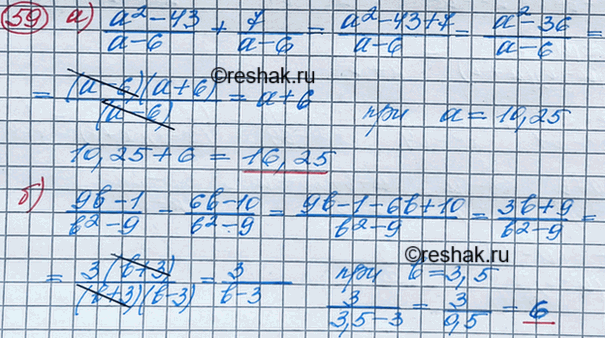 59 а) (a²-43)/(a-6) + 7/(a-6) = (a²-43+7)/(a-6) = (a²-36)/(a-6) =
©reshak.ru
= ((a-6)(a+6))/(a-6) = a+6 при a=10,25
10,25+6 = 16,25
б) (9b-1)/(b²-9) - (6b-10)/(b²-9) = (9b-1-6b+10)/(b²-9) = (3b+9)/(b²-9) =
©reshak.ru
= (3(b+3))/((b+3)(b-3)) = 3/(b-3) при b=3,5
3/(3,5-3) = 3/0,5 = 6